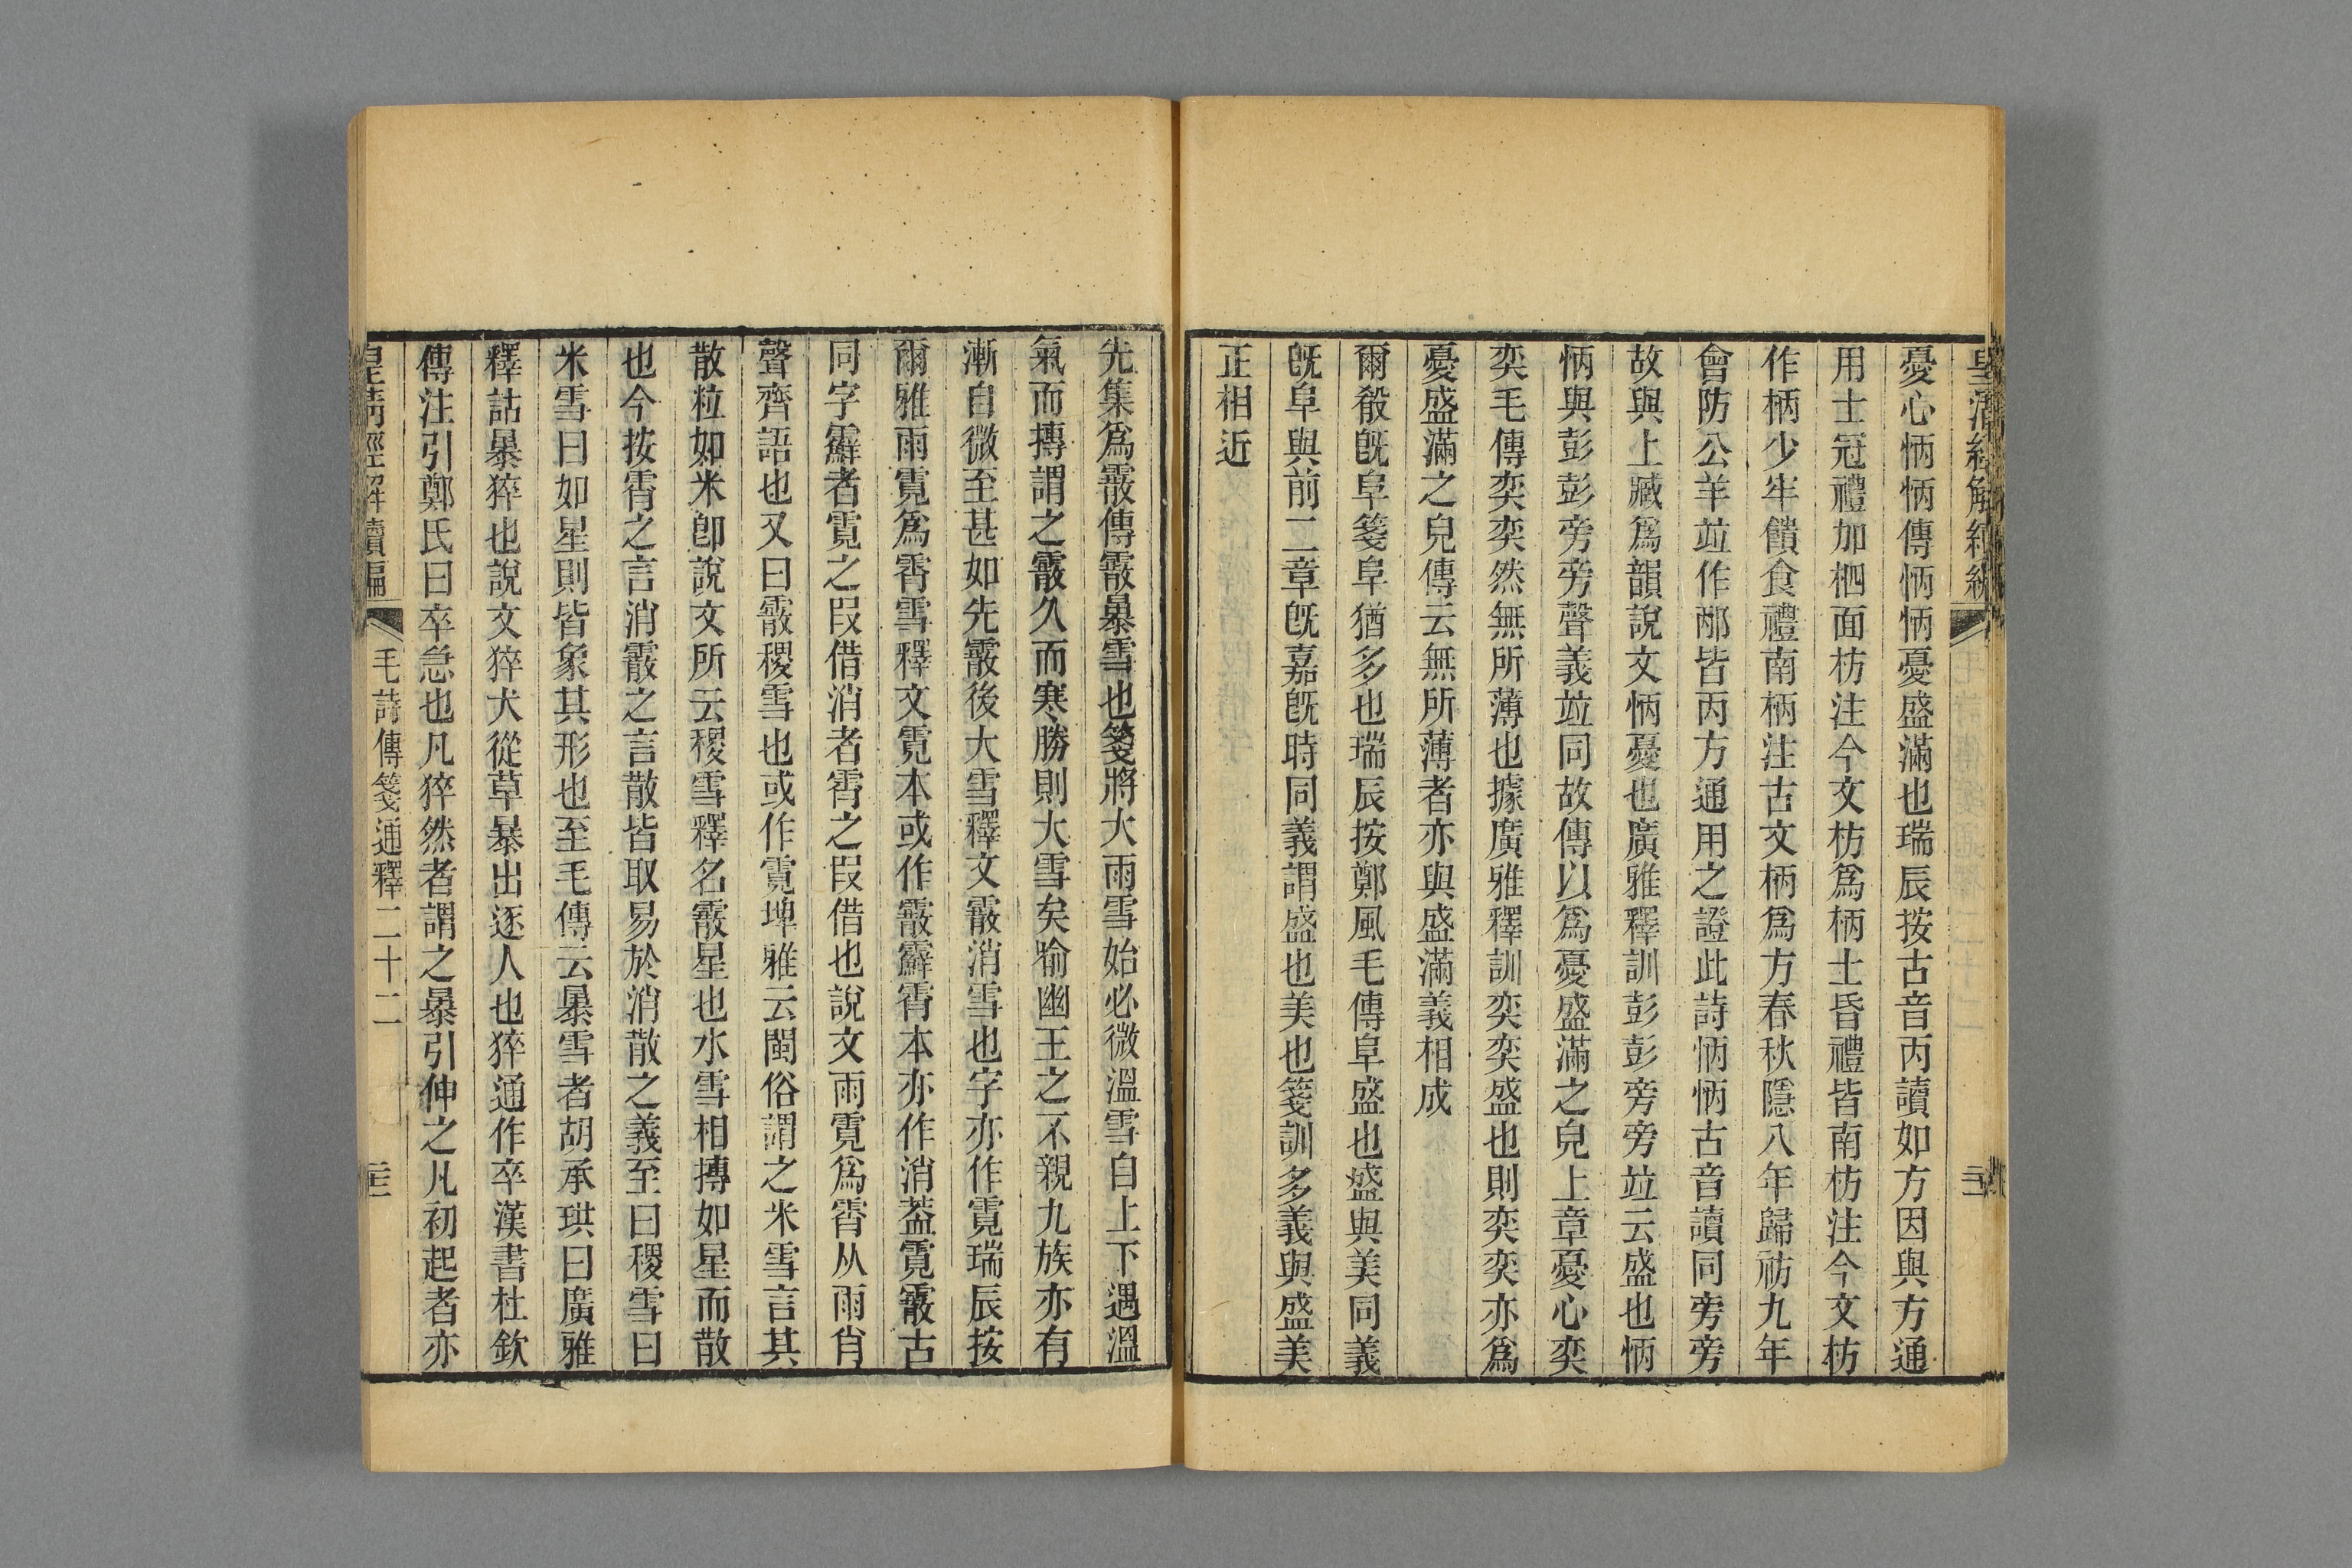 皇清經解續編
憂心怲怲傳怲怲憂盛滿也瑞辰按古音丙讀如方因與方通
用士冠禮加柶面枋注今文枋爲柄士昏禮皆南枋注今文枋
作柄少牢饋食禮南柄注古文柄爲方春秋隱八年歸祊九年
會防公羊竝作邴皆丙方通用之證此詩怲怲古音讀同旁旁
故與上臧爲韻說文怲憂也廣雅釋訓彭彭旁旁竝云盛也怲
怲與彭彭旁旁聲義竝同故傳以爲憂盛滿之皃上章憂心奕
奕毛傳奕奕然無所薄也據廣雅釋訓奕奕盛也則奕奕亦爲
憂盛滿之皃傳云無所薄者亦與盛滿義相成
爾殽旣阜箋阜猶多也瑞辰按鄭風毛傳阜盛也盛與美同義
旣阜與前二章旣嘉旣時同義謂盛也美也箋訓多義與盛美
正相近
先集爲霰傳霰暴雪也箋將大雨雪始必微溫雪自上下遇溫
氣而摶謂之霰久而寒勝則大雪矣喻幽王之不親九族亦有
漸自微至甚如先霰後大雪釋文霰消雪也字亦作霓瑞辰按
爾雅雨霓爲霄雪釋文霓本或作霰霹霄本亦作消葢霓霰古
同字霹者霓之叚借消者霄之叚借也說文雨霓爲霄从雨肖
聲齊語也又曰霰稷雪也或作霓埤雅云閩俗謂之米雪言其
散粒如米卽說文所云稷雪釋名霰星也水雪相摶如星而散
也今按霄之言消霰之言散皆取易於消散之義至曰稷雪曰
米雪曰如星則皆象其形也至毛傳云暴雪者胡承珙曰廣雅
釋詁暴猝也說文猝犬從草暴出逐人也猝通作卒漢書杜欽
傳注引鄭氏曰卒急也凡猝然者謂之暴引伸之凡初起者亦
皇清經解續編
毛詩傳箋通釋二十二